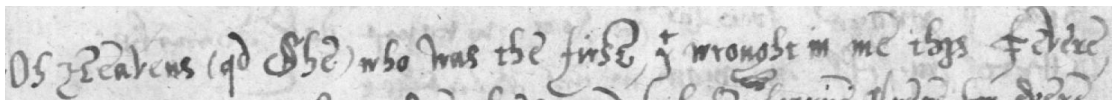 Oh Heavens (qd She) who was the firste, yt wrought in me this Fevere,